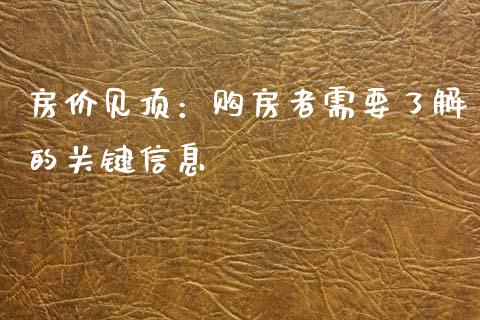 房价见顶：购房者需要了解
的关键信息